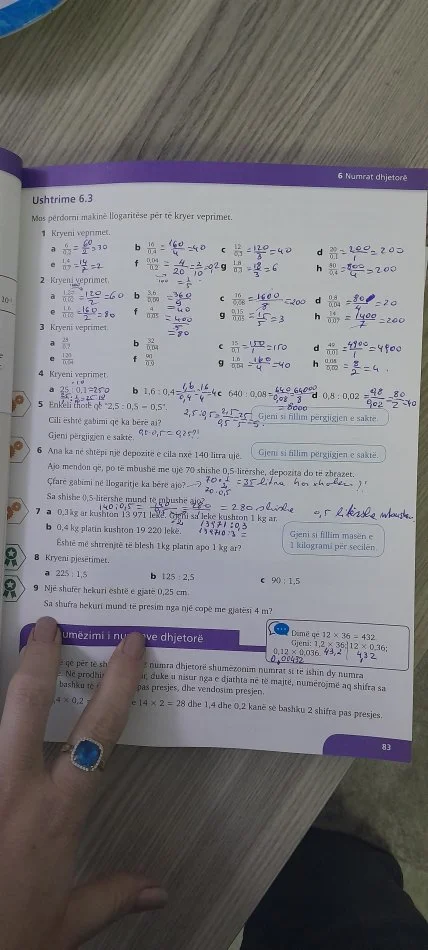 6 Numrat dhjetorë
Ushtrime 6.3
Mos përdorni makinë llogaritëse për të kryer veprimet.
1 Kryeni veprimet.
a 6/0,2 = 60/2 = 30 b 16/0,4 = 160/4 = 40 c 12/0,3 = 120/3 = 40 d 20/0,1 = 200/1 = 200
e 1,4/0,7 = 14/7 = 2 f 0,04/0,2 = 4/20 = 2/10 = 0,2 g 1,8/0,3 = 18/3 = 6 h 80/0,4 = 800/4 = 200
2 Kryeni veprimet.
= 120/2 = 60 b 3,6/0,09 = 360/9 = 40 c 16/0,08 = 1600/8 = 200 d 0,8/0,04 = 80/4 = 20
e 1,6/0,02 = 160/2 = 80 f 4/0,05 = 400/5 = 80 g 0,15/0,05 = 15/5 = 3 h 14/0,07 = 1400/7 = 200
3 Kryeni veprimet.
a 28/0,7 b 32/0,04 c 15/0,1 = 150/1 = 150 d 49/0,01 = 4900/1 = 4900
e 120/0,04 f 90/0,9 g 1,6/0,04 = 160/4 = 40 h 0,08/0,02 = 8/2 = 4
4 Kryeni veprimet.
a 25 : 0,1 = 250 b 1,6 : 0,4 = 1,6/0,4 = 16/4 = 4 c 640 : 0,08 = 640/0,08 = 64000/8 = 8000 d 0,8 : 0,02 = 0,8/0,02 = 80/2 = 40
5 Enkeli thotë që "2,5 : 0,5 = 0,5".
Gjeni si fillim përgjigjen e saktë.
Cili është gabimi që ka bërë ai?
2,5 : 0,5 = 2,5/0,5 = 25/5 = 5
Gjeni përgjigjen e saktë.
6 Ana ka në shtëpi një depozitë e cila nxë 140 litra ujë.
Gjeni si fillim përgjigjen e saktë.
Ajo mendon që, po të mbushë me ujë 70 shishe 0,5-litërshe, depozita do të zbrazet.
Çfarë gabimi në llogaritje ka bërë ajo?
= 35 litra
70 · 0,5
Sa shishe 0,5-litërshe mund të mbushë ajo?
140 : 0,5 = = 280 = 280 shishe 0,5 litërshe
7 a 0,3 kg ar kushton 13 971 lekë. Gjeni sa lekë kushton 1 kg ar.
13971 : 0,3
Gjeni si fillim masën e
1 kilogrami për secilën.
b 0,4 kg platin kushton 19 220 lekë.
139710 : 3 =
Është më shtrenjtë të blesh 1kg platin apo 1 kg ar?
8 Kryeni pjesëtimet.
a 225 : 1,5 b 125 : 2,5 c 90 : 1,5
9 Një shufër hekuri është e gjatë 0,25 cm.
Sa shufra hekuri mund të presim nga një copë me gjatësi 4 m?
umëzimi i nu ve dhjetorë
Dimë që 12 × 36 = 432.
Gjeni: 1,2 × 36; 12 × 0,36;
0,12 × 0,036. 43,2 4,32
0,00432
e që për të sh numra dhjetorë shumëzonim sikur të ishin dy numra
. Në prodhi ar, duke u nisur nga e djathta në të majtë, numërojmë aq shifra sa
bashku të pas presjes, dhe vendosim presjen.
,4 × 0,2 = e 14 × 2 = 28 dhe 1,4 dhe 0,2 kanë së bashku 2 shifra pas presjes.
83